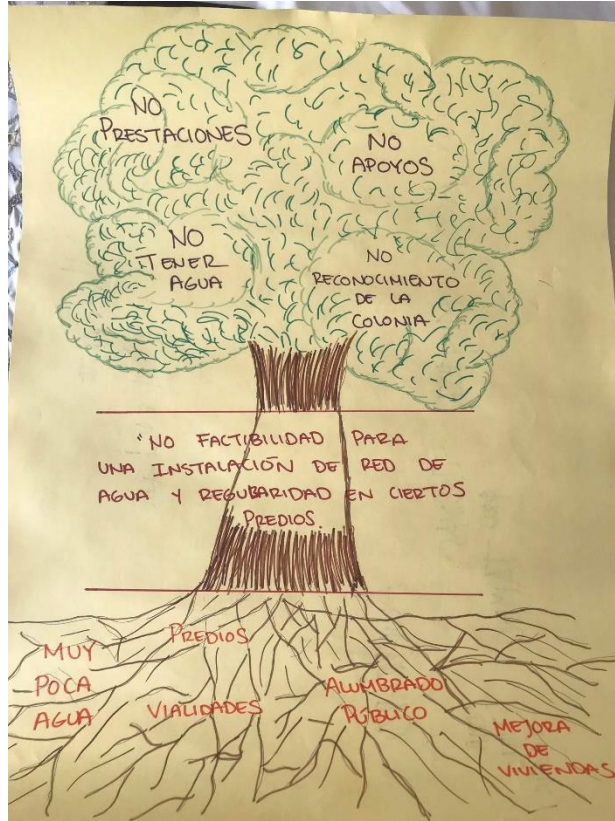 NO
PRESTACIONES
NO
APOYOS
NO
TENER
AGUA
NO
RECONOCIMIENTO
DE LA
COLONIA
"NO FACTIBILIDAD PARA
UNA INSTALACIÓN DE RED DE
AGUA Y REGULARIDAD EN CIERTOS
PREDIOS.
MUY
POCA
AGUA
PREDIOS
VIALIDADES
ALUMBRADO
PÚBLICO
MEJORA
DE
VIVIENDAS